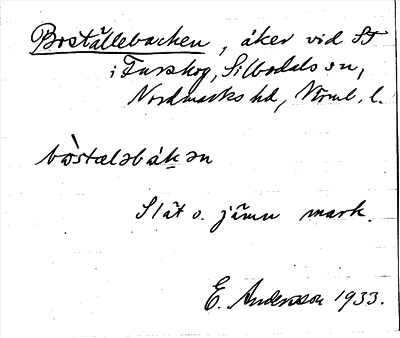 Boställebacken, åker vid ST
i Turskog, Silbodals sn,
Nordmarks hd, Värml. l.
bòstæləbákən
Slät o. jämn mark.
E. Andersson 1933.